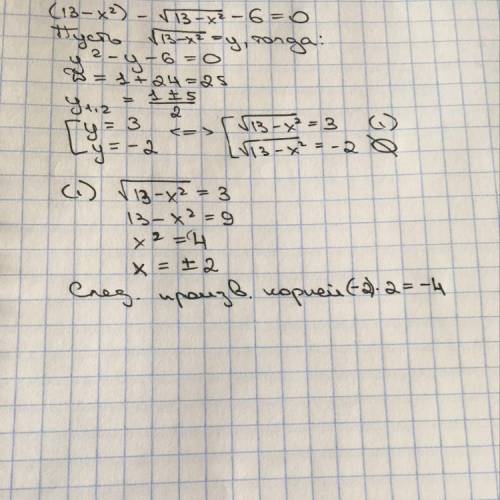 (13-x²) - √(13-x²) - 6 = 0
Пусть √(13-x²) = y, тогда:
y² - y - 6 = 0
D = 1 + 24 = 25
y₁,₂ = (1 ± 5)/2
[ y = 3 <=> [ √(13-x²) = 3 (1)
[ y = -2 [ √(13-x²) = -2 ∅
(1) √(13-x²) = 3
13 - x² = 9
x² = 4
x = ± 2
След. произв. корней (-2)·2 = -4